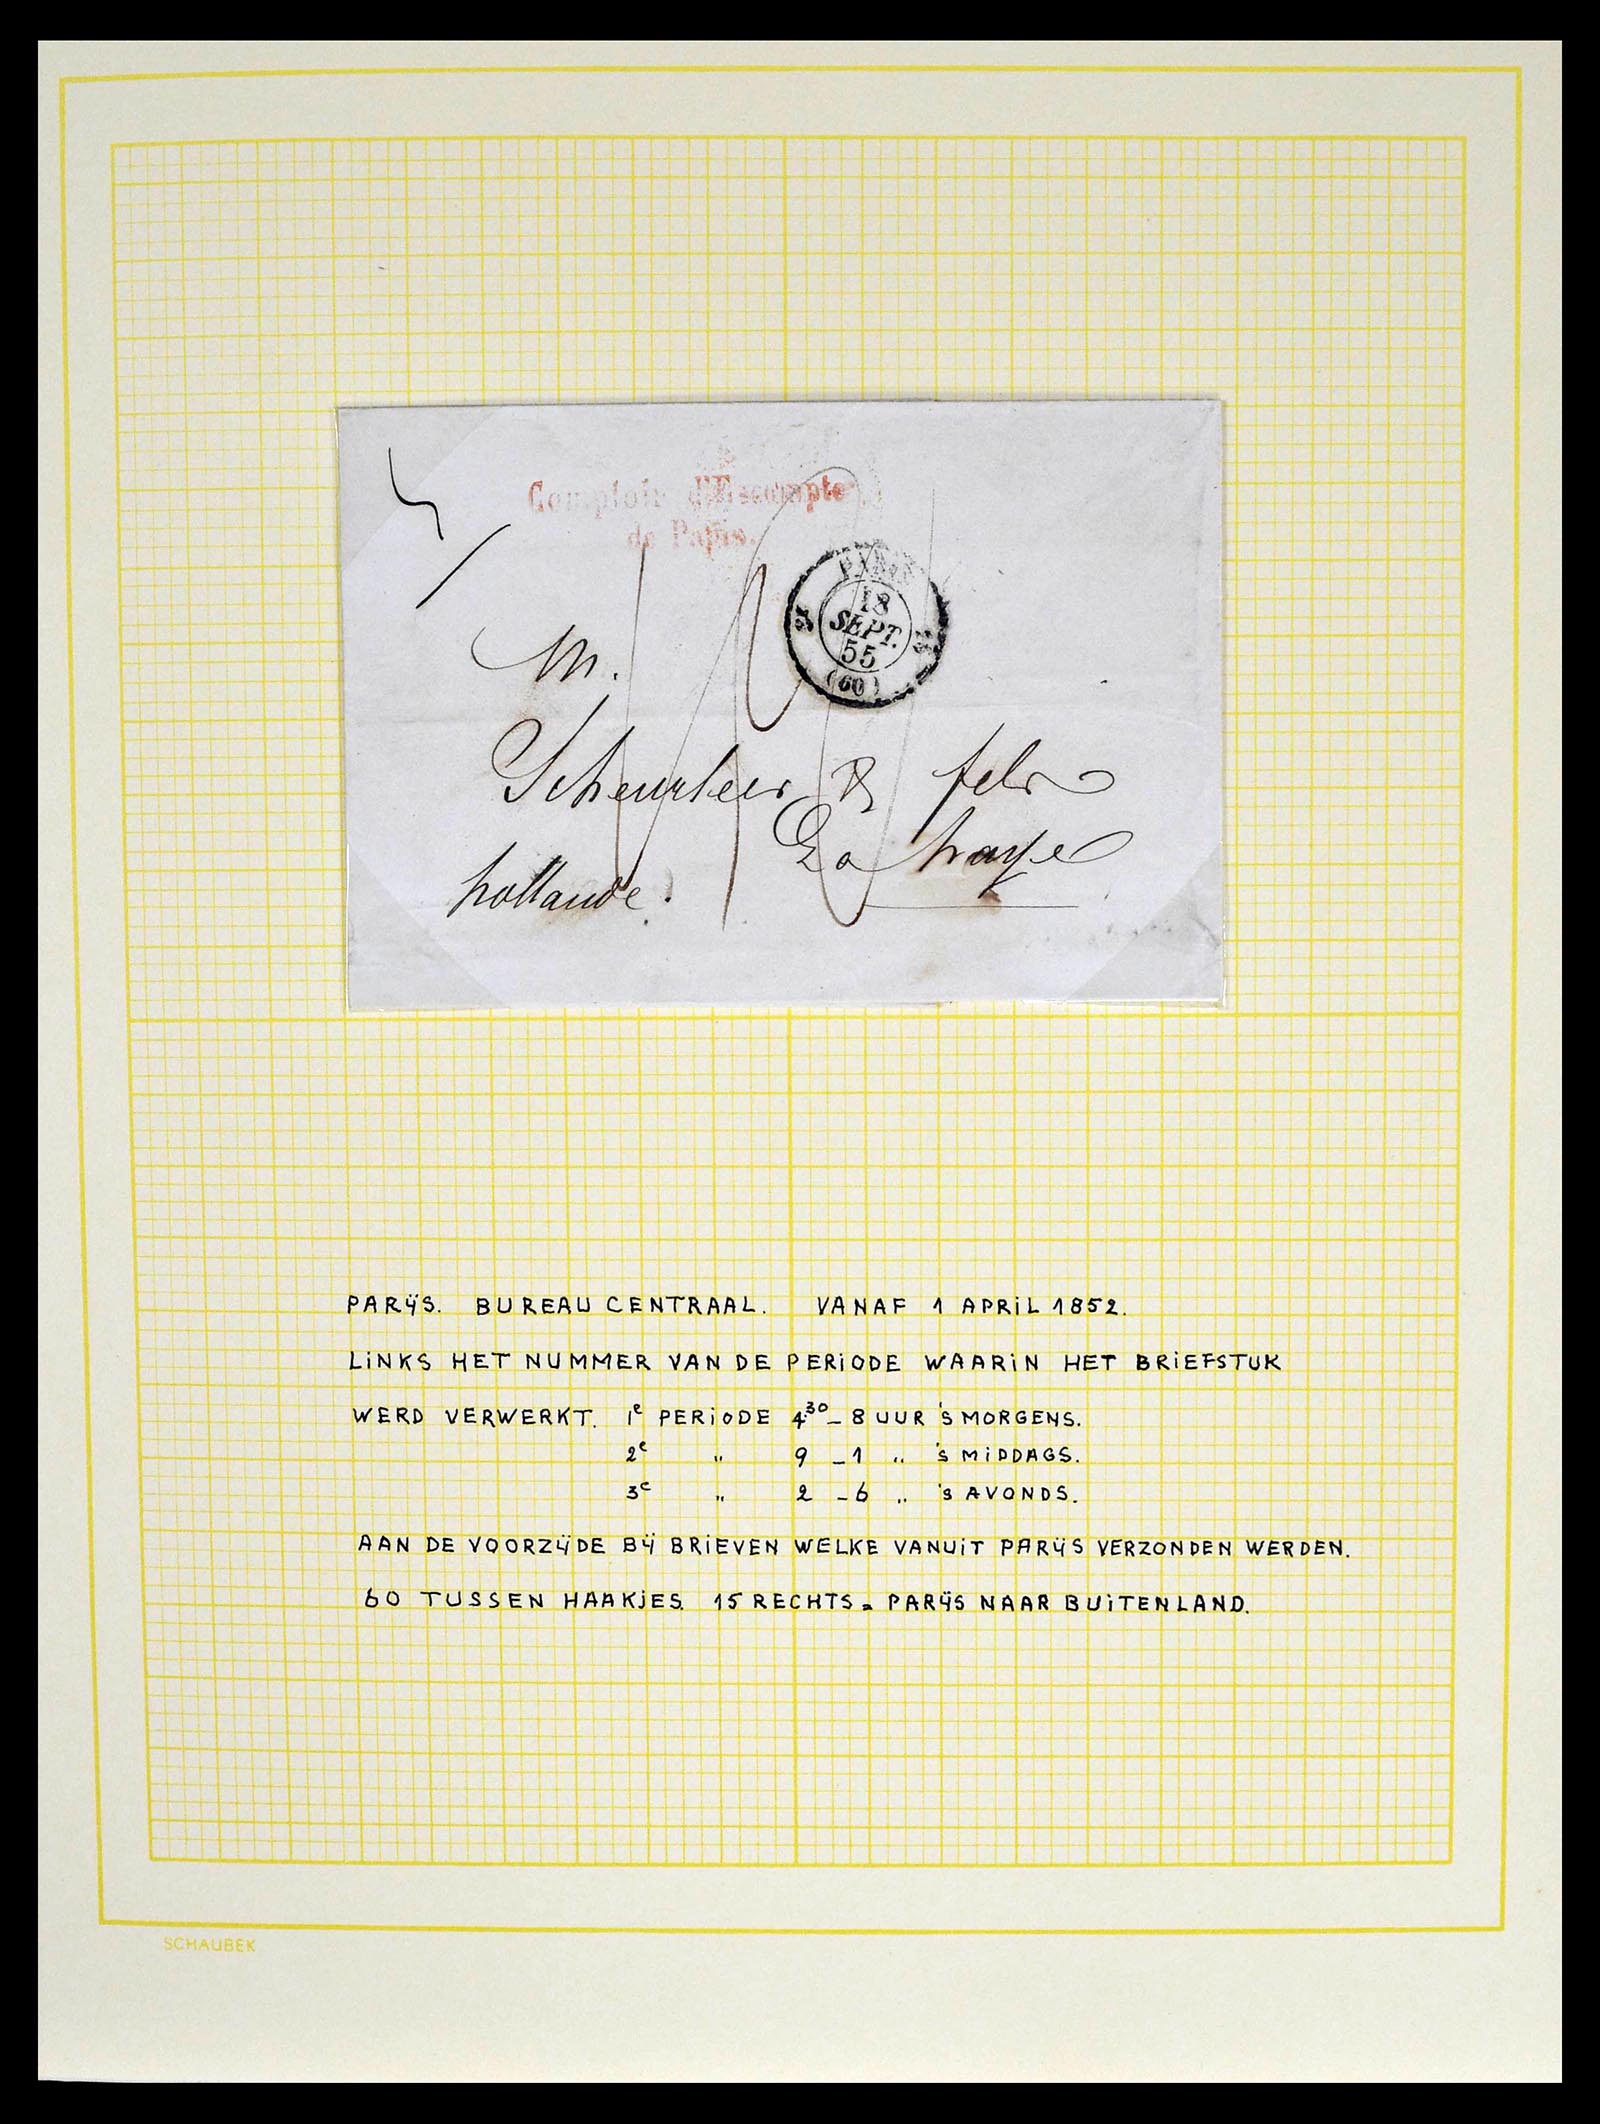 Comptoir d'Escompte
de Paris.
PARIS
18
SEPT.
55
(60)
M.
Scheurleer & fils
La haye
hollande.
PARIJS. BUREAU CENTRAAL. VANAF 1 APRIL 1852.
LINKS HET NUMMER VAN DE PERIODE WAARIN HET BRIEFSTUK
WERD VERWERKT. 1e PERIODE 4³⁰ - 8 UUR 's MORGENS.
2e " 9 - 1 " 's MIDDAGS.
3e " 2 - 6 " 's AVONDS.
AAN DE VOORZIJDE BIJ BRIEVEN WELKE VANUIT PARIJS VERZONDEN WERDEN.
60 TUSSEN HAAKJES. 15 RECHTS = PARIJS NAAR BUITENLAND.
SCHAUBEK